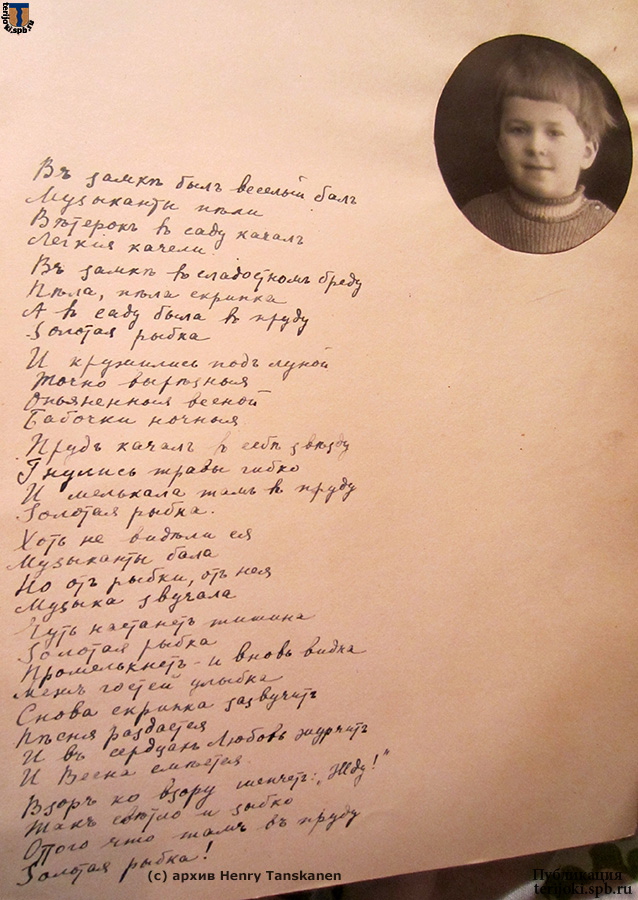 terijoki.spb.ru
Въ замкѣ былъ веселый балъ
Музыканты пѣли
Вѣтерокъ в саду качалъ
Легкія качели.
Въ замкѣ в сладостномъ бреду
Пѣла, пѣла скрипка
А в саду была в пруду
Золотая рыбка
И кружились подъ луной
Точно вырѣзныя
Опьяненныя весной
Бабочки ночныя
Прудъ качалъ в себѣ звѣзду
Гнулись травы гибко
И мелькала тамъ в пруду
Золотая рыбка.
Хоть не видѣли ея
Музыканты бала
Но отъ рыбки, отъ нея
Музыка звучала
Чуть настанетъ тишина
Золотая рыбка
Промелькнетъ - и вновь видна
Межъ гостей улыбка
Снова скрипка зазвучитъ
Пѣсня раздается
И въ сердцахъ Любовь журчитъ
И Весна смѣется.
Взоръ ко взору шепчетъ: „Жду!"
Такъ свѣтло и зыбко
Отого что тамъ въ пруду
Золотая рыбка!
(c) архив Henry Tanskanen
Публикация
terijoki.spb.ru